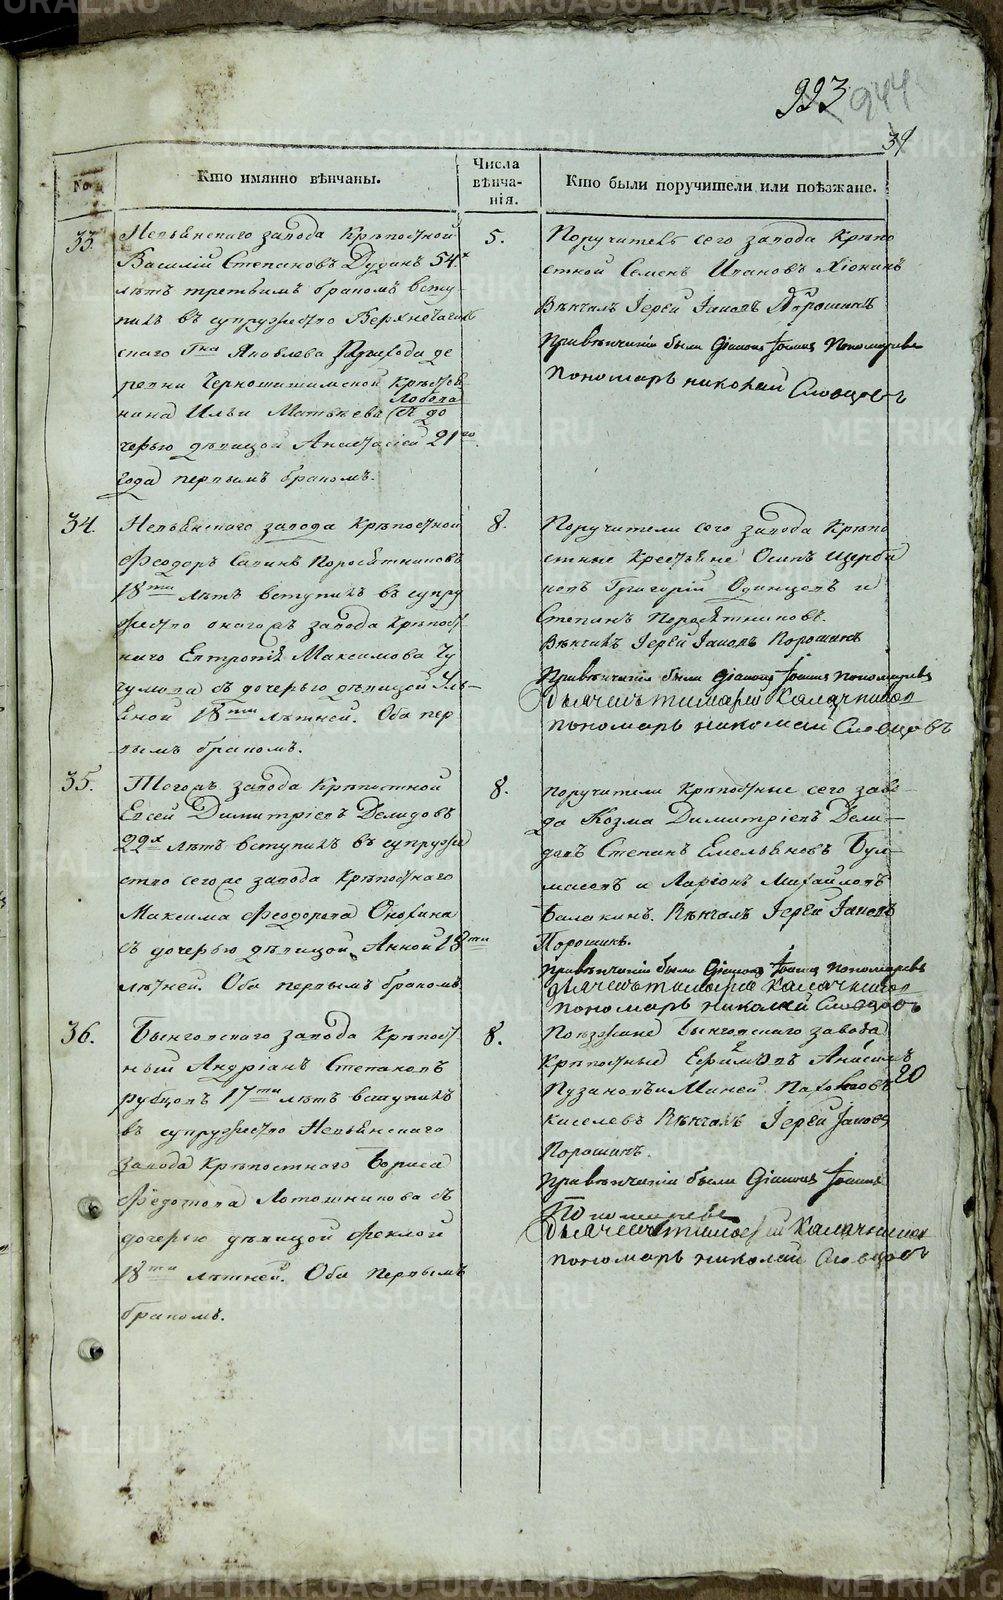 993
944
39
No
Кто имянно вѣнчаны.
Числа вѣнча-
нія.
Кто были поручители или поѣзжане.
33.
Невьянскаго завода Крѣпостной
Василій Степановъ Дудинъ 54.х
лѣтъ третьимъ бракомъ всту
пилъ въ супружество Верхнетагиль
скаго Яковлева Прихода де
ревни Крестья
нина Ильи Матвѣева
Лобова
съ до
черью дѣвицой Анастасіей 21го
года первымъ бракомъ.
5.
Поручитель сего завода Крѣпо
стной Семенъ Ивановъ
Вѣнчалъ Іерей Іаковъ Порошинъ
Привѣнчаніи были Діаконъ Іоаннъ Пономаревъ
пономарь николай Словцовъ
34.
Невьянскаго завода Крѣпостной
Феодоръ Савинъ Поросятниковъ
18ти лѣтъ вступилъ въ супру
жество онагожъ завода Крѣпост
наго Евтропія Максимова Чу
гумова съ дочерью дѣвицой Уль-
яной 18ти лѣтней. Оба пер
вымъ бракомъ.
8.
Поручители сего завода Крѣпо
стные Крестьяне Осипъ Щерба
ковъ Григорій Одинцовъ и
Степанъ Поросятниковъ.
Вѣнчалъ Іерей Іаковъ Порошинъ
Привѣнчаніи были Діаконъ Іоаннъ Пономаревъ
дьячекъ тимофей Калачниковъ
пономарь николай Словцовъ
35.
Тогожъ завода Крѣпостной
Евсей Димитріевъ Демидовъ
22х лѣтъ вступилъ въ супруже
ство сегоже завода Крѣпостнаго
Максима Феодорова Онохина
съ дочерью дѣвицой Анной 18ти
лѣтней. Оба первымъ бракомъ
8.
поручители Крѣпостные сего заво
да Козма Димитріевъ Деми-
довъ Степанъ Емельяновъ Бул-
масовъ и Ларіонъ Михайловъ
Балакинъ. Вѣнчалъ Іерей Іаковъ
Порошинъ.
Привѣнчаніи были Діаконъ Іоаннъ Пономаревъ
дьячекъ тимофей Калачниковъ
пономарь николай Словцовъ
36.
Быньговскаго завода Крѣпост
ный Андріанъ Степановъ
рубцовъ 17ти лѣтъ вступилъ
въ супружество Невьянскаго
завода Крѣпостнаго Бориса
Федотова Лотошникова съ
дочерью дѣвицой Феклой
18ти лѣтней. Оба первымъ
бракомъ.
8.
Поѣзжане Быньговскаго завода
Крѣпостные Ефимъ Анисимъ
Пузановъ и Миней Паховъ 20
киселевъ Вѣнчалъ Іерей Іаковъ
Порошинъ.
Привѣнчаніи были Діаконъ Іоаннъ
Пономаревъ
дьячекъ тимофей Калачниковъ
пономарь николай Словцовъ